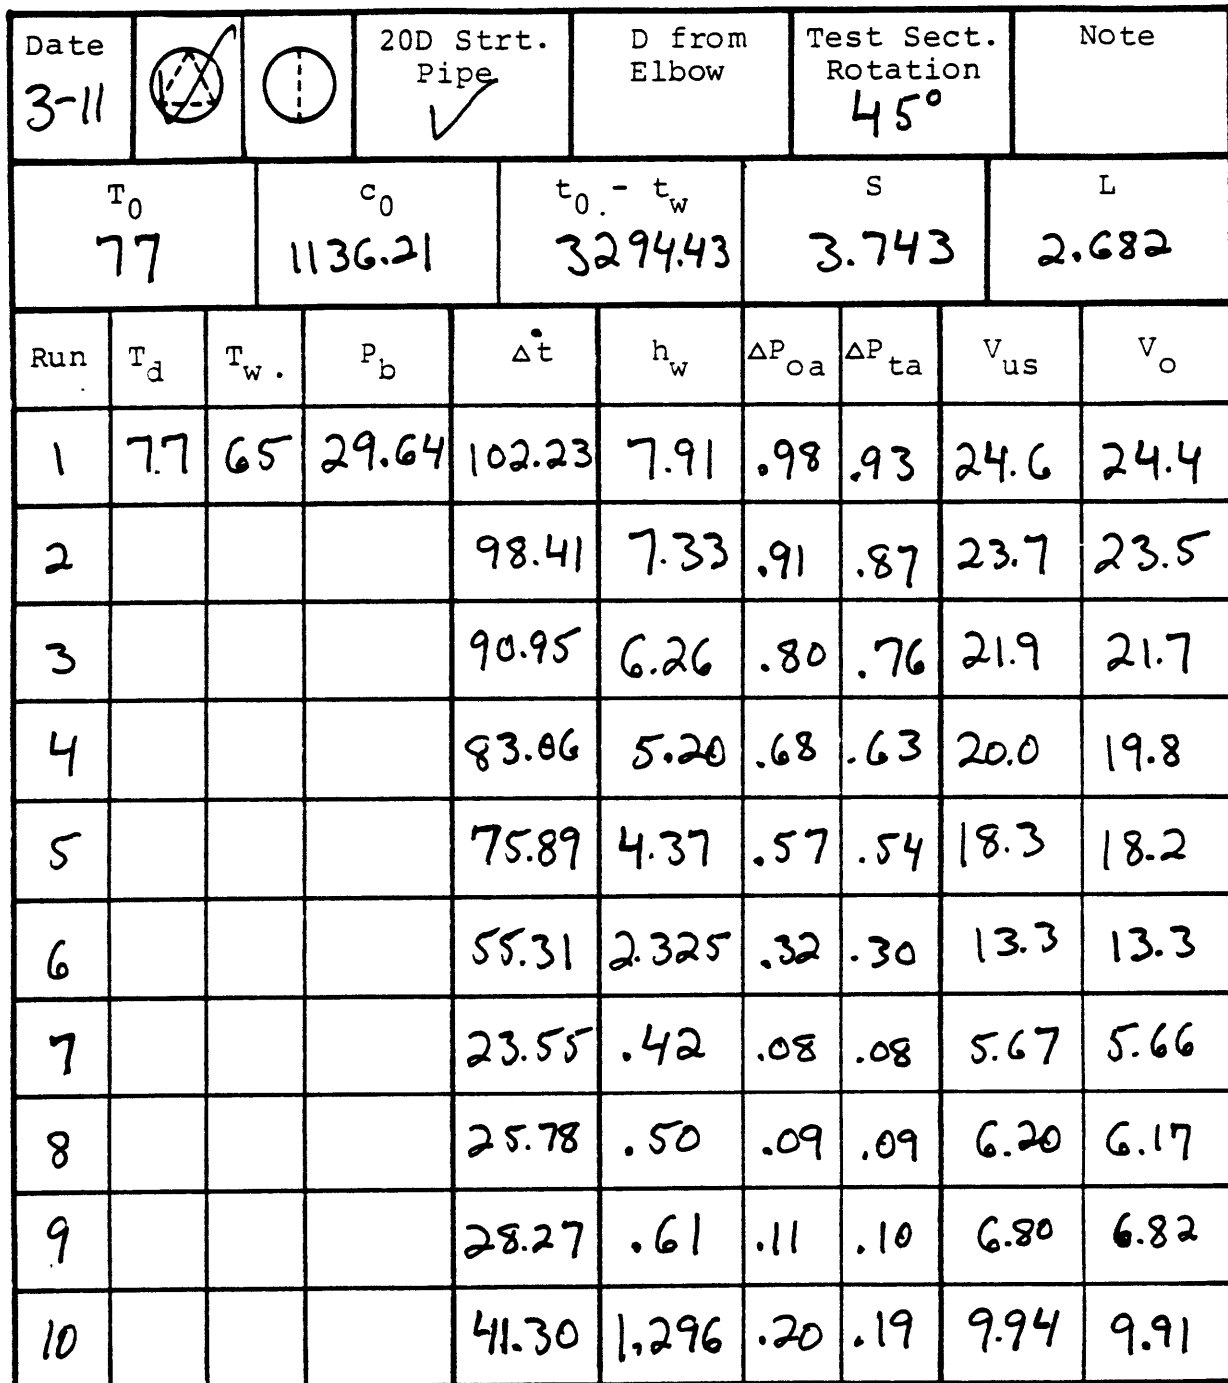 Date 20D Strt. D from Test Sect. Note
Pipe Elbow Rotation
3-11 ✓ 45°
T0 c0 t0 - tw S L
77 1136.21 3294.43 3.743 2.682
Run Td Tw. Pb Δt hw ΔPoa ΔPta Vus Vo
1 77 65 29.64 102.23 7.91 .98 .93 24.6 24.4
2 98.41 7.33 .91 .87 23.7 23.5
3 90.95 6.26 .80 .76 21.9 21.7
4 83.06 5.20 .68 .63 20.0 19.8
5 75.89 4.37 .57 .54 18.3 18.2
6 55.31 2.325 .32 .30 13.3 13.3
7 23.55 .42 .08 .08 5.67 5.66
8 25.78 .50 .09 .09 6.20 6.17
9 28.27 .61 .11 .10 6.80 6.82
10 41.30 1.296 .20 .19 9.94 9.91